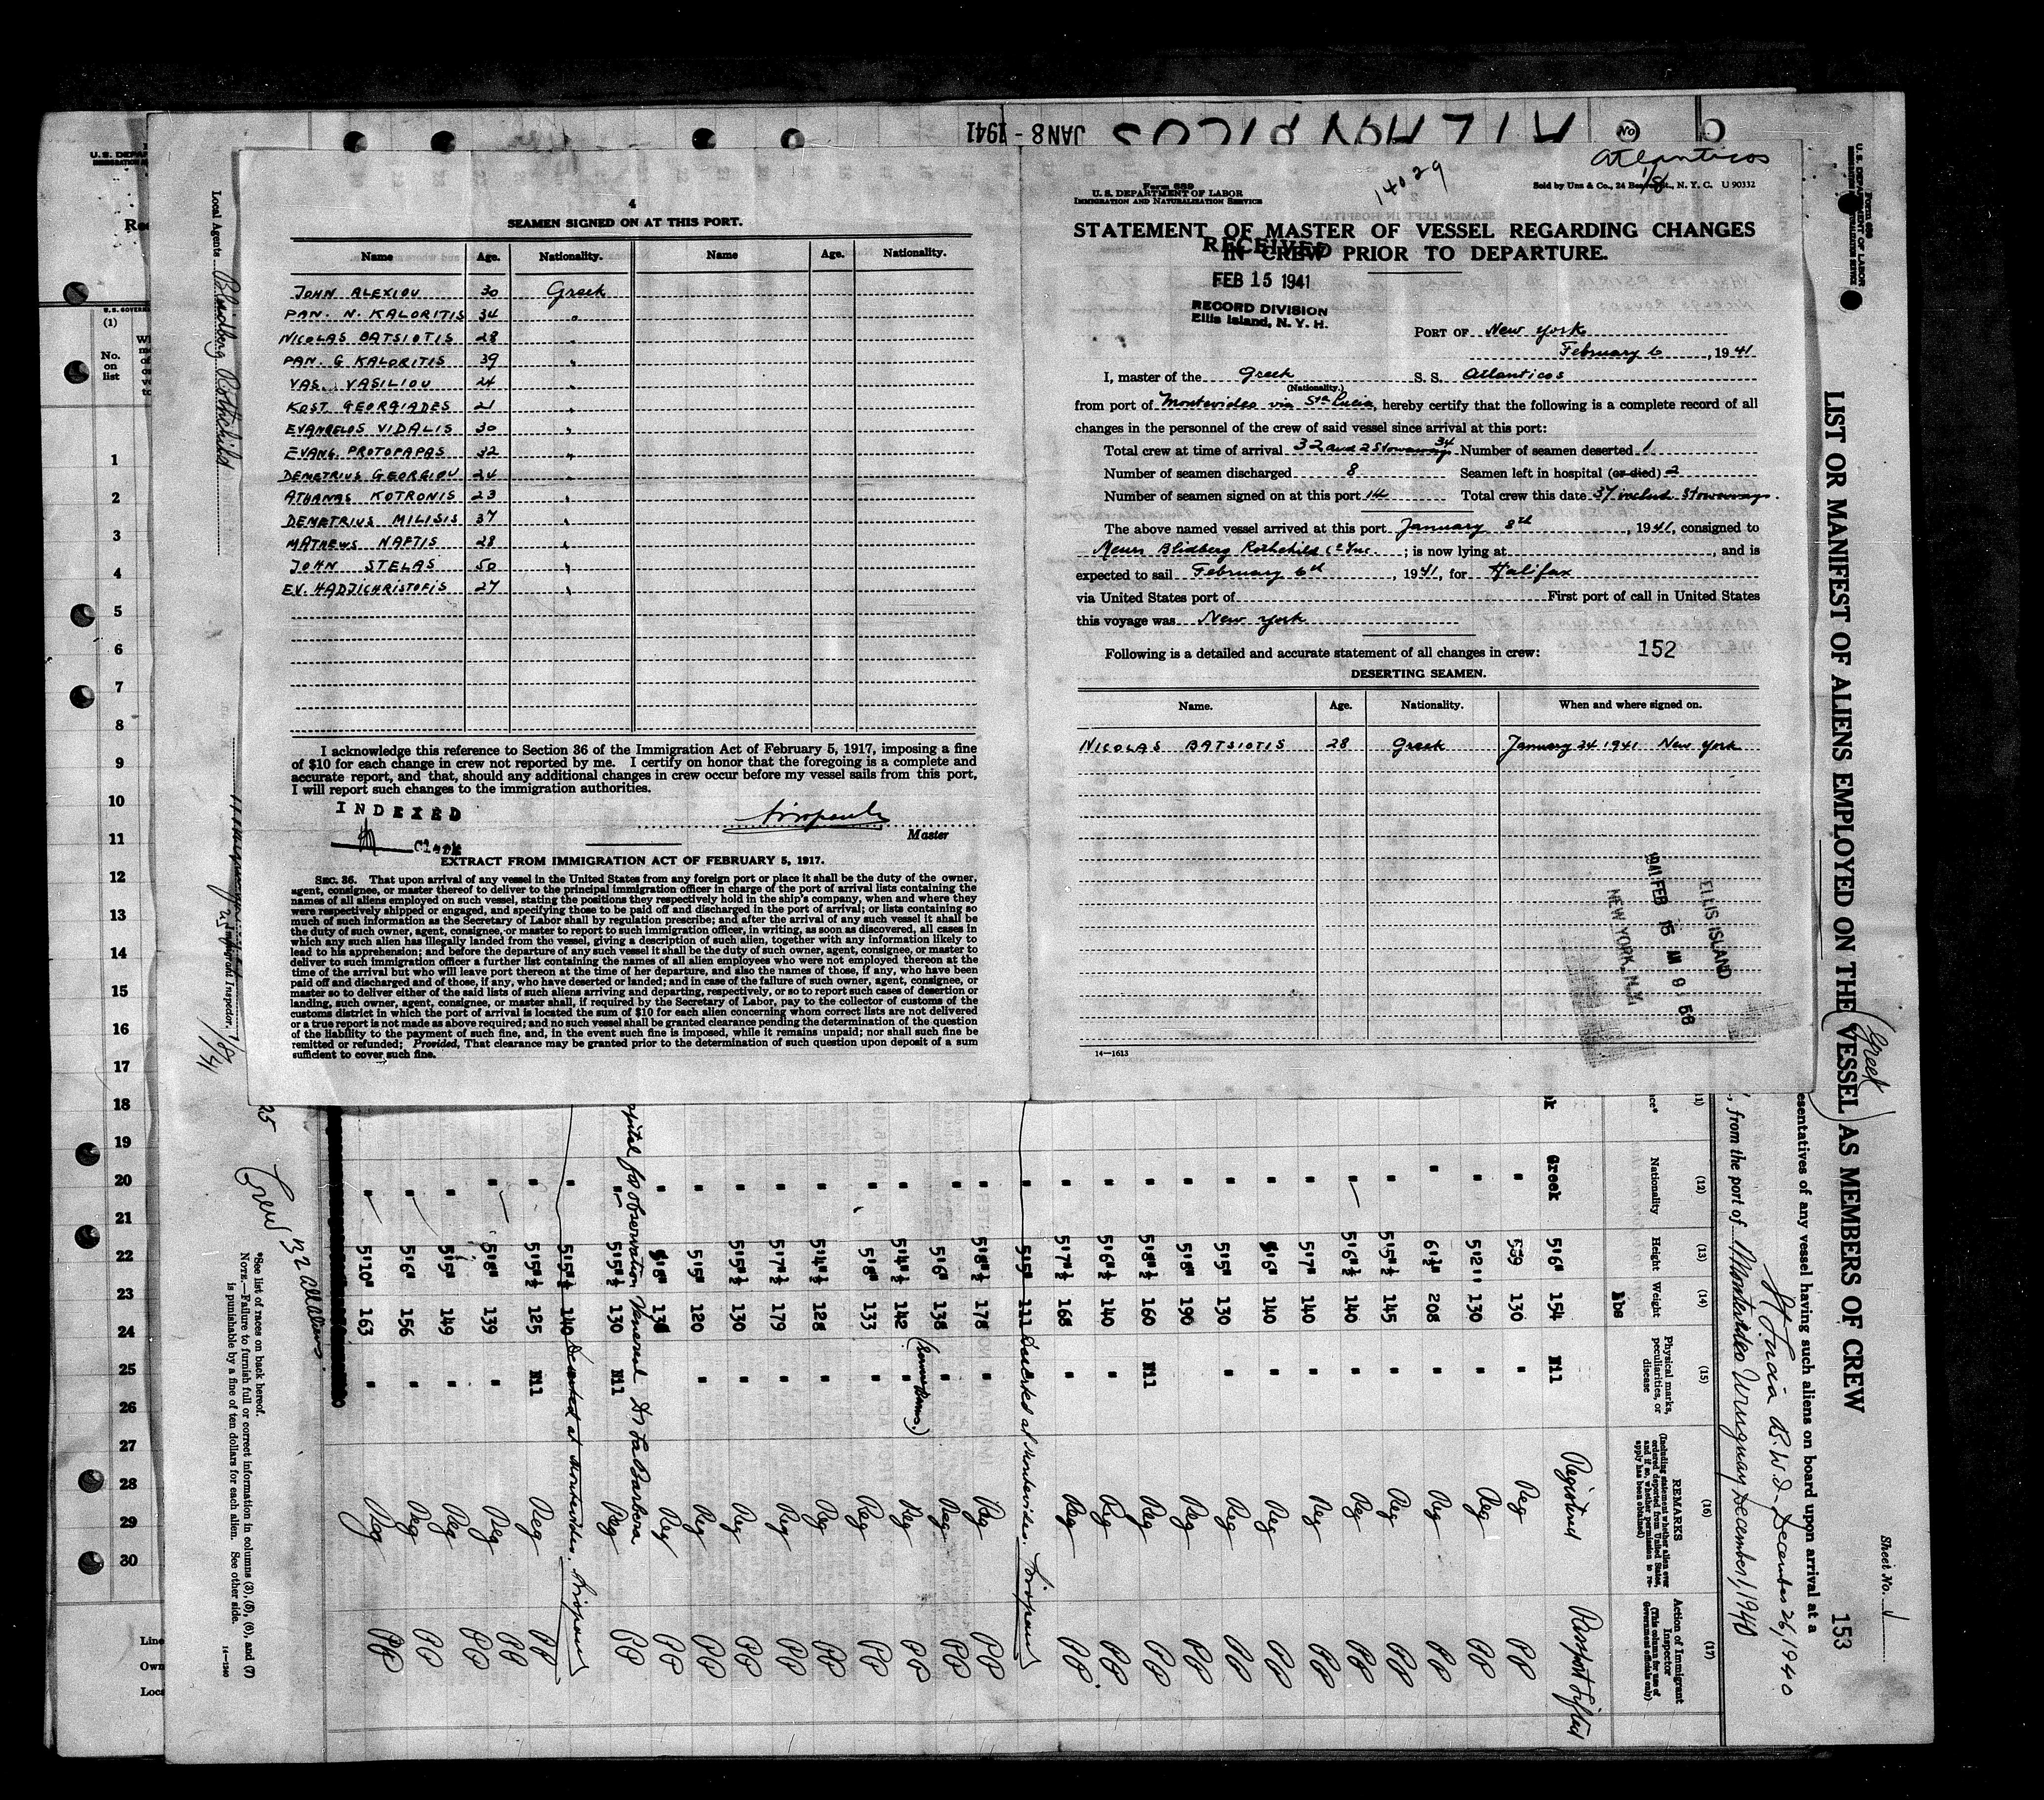 4
SEAMEN SIGNED ON AT THIS PORT.
Name Age. Nationality. Name Age. Nationality.
JOHN ALEXIOU 30 Greek
PAN. N. KALORITIS 34 "
NICOLAS BATSIOTIS 28 "
PAN. G KALORITIS 39 "
VAS. VASILIOU 24 "
KOST GEORGIADES 21 "
EVANGELOS VIDALIS 30 "
EVANG. PROTOPAPAS 32 "
DEMETRIUS GEORGIOU 24 "
ATHANAS KOTRONIS 23 "
DEMETRIUS MILISIS 37 "
MATHEWS NAFTIS 28 "
JOHN STELAS 50 "
EV. HADJICHRISTOFIS 27 "
I acknowledge this reference to Section 36 of the Immigration Act of February 5, 1917, imposing a fine
of $10 for each change in crew not reported by me. I certify on honor that the foregoing is a complete and
accurate report, and that, should any additional changes in crew occur before my vessel sails from this port,
I will report such changes to the immigration authorities.
INDEXED
Clerk
Master
EXTRACT FROM IMMIGRATION ACT OF FEBRUARY 5, 1917.
SEC. 36. That upon arrival of any vessel in the United States from any foreign port or place it shall be the duty of the owner,
agent, consignee, or master thereof to deliver to the principal immigration officer in charge of the port of arrival lists containing the
names of all aliens employed on such vessel, stating the positions they respectively hold in the ship's company, when and where they
were respectively shipped or engaged, and specifying those to be paid off and discharged in the port of arrival; or lists containing so
much of such information as the Secretary of Labor shall by regulation prescribe; and after the arrival of any such vessel it shall be
the duty of such owner, agent, consignee, or master to report to such immigration officer, in writing, as soon as discovered, all cases in
which any such alien has illegally landed from the vessel, giving a description of such alien, together with any information likely to
lead to his apprehension; and before the departure of any such vessel it shall be the duty of such owner, agent, consignee, or master to
deliver to such immigration officer a further list containing the names of all alien employees who were not employed thereon at the
time of the arrival but who will leave port thereon at the time of her departure, and also the names of those, if any, who have been
paid off and discharged and of those, if any, who have deserted or landed; and in case of the failure of such owner, agent, consignee, or
master so to deliver either of the said lists of such aliens arriving and departing, respectively, or so to report such cases of desertion or
landing, such owner, agent, consignee, or master shall, if required by the Secretary of Labor, pay to the collector of customs of the
customs district in which the port of arrival is located the sum of $10 for each alien concerning whom correct lists are not delivered
or a true report is not made as above required; and no such vessel shall be granted clearance pending the determination of the question
of the liability to the payment of such fine, and, in the event such fine is imposed, while it remains unpaid; nor shall such fine be
remitted or refunded; Provided, That clearance may be granted prior to the determination of such question upon deposit of a sum
sufficient to cover such fine.
Atlanticos
1/8
14029
Form 689
U. S. DEPARTMENT OF LABOR
IMMIGRATION AND NATURALIZATION SERVICE
Sold by Unz & Co., 24 Beaver St., N. Y. C. U 90332
STATEMENT OF MASTER OF VESSEL REGARDING CHANGES
IN CREW PRIOR TO DEPARTURE.
RECEIVED
FEB 15 1941
RECORD DIVISION
Ellis Island, N. Y. H.
PORT OF New York
February 6, 1941
I, master of the Greek S. S. Atlanticos
(Nationality.)
from port of Montevideo via Sta Lucia, hereby certify that the following is a complete record of all
changes in the personnel of the crew of said vessel since arrival at this port:
Total crew at time of arrival 32 and 2 Stowaways 34 Number of seamen deserted 1
Number of seamen discharged 8 Seamen left in hospital (or died) 2
Number of seamen signed on at this port 14 Total crew this date 37 includ. Stowaways.
The above named vessel arrived at this port January 8th, 1941, consigned to
Messrs Blidberg Rothchild Co Inc.; is now lying at , and is
expected to sail February 6th, 1941, for Halifax
via United States port of First port of call in United States
this voyage was New York
Following is a detailed and accurate statement of all changes in crew: 152
DESERTING SEAMEN.
Name. Age. Nationality. When and where signed on.
NICOLAS BATSIOTIS 28 Greek January 24 1941 New York
14—1613
1941 FEB 15 AM 9 56
ELLIS ISLAND
NEW YORK, N.Y.
JAN 8 - 1941
NO
Local Agents Blindberg Rothchild
Immigrant Inspector.
(1)
No. on list
1
2
3
4
5
6
7
8
9
10
11
12
13
14
15
16
17
18
19
20
21
22
23
24
25
26
27
28
29
30
Line
Own
Loca
Form 689
U. S. DEPARTMENT OF LABOR
IMMIGRATION AND NATURALIZATION SERVICE
Sheet No. 1
153
LIST OR MANIFEST OF ALIENS EMPLOYED ON THE VESSEL AS MEMBERS OF CREW
(Greek)
esentatives of any vessel having such aliens on board upon arrival at a
St Lucia B.W.I. December 26, 1940
, from the port of Montevideo Uruguay December 1, 1940
(12) (13) (14) (15) (16) (17)
Nationality
Height
Weight
lbs
Physical marks, peculiarities, or disease
REMARKS
(Including statement whether alien ever ordered deported from United States, and if so, whether permission to reapply has been obtained)
Action of Immigrant Inspector
(This column for use of Government officials only)
Greek 5'6" 154 Nil Registered Passport Lifted
559 130 " Reg PP
" 5'2" 130 " Reg PP
" 208 " Reg PP
" 5'5"½ 145 " Reg PP
" 5'6"½ 140 " Reg PP
" 5'7" 140 " Reg PP
" 5'6" 140 " Reg PP
" 5'5" 130 " Reg PP
" 5'8" 190 Reg PP
" 5'8"½ 160 Nil Reg PP
" 5'6"½ 140 " Reg PP
" 5'7"½ 168 " Reg PP
" 5'5" 111 Deserted at Montevideo.
" 5'8"½ 178 " Reg PP
" 5'6" 138 " Reg PP
" 5'4"½ 142 " Reg PP
" 5'8" 133 " Reg PP
" 5'4"½ 128 " Reg PP
" 5'7"½ 179 " Reg PP
" 5'5"½ 130 " Reg PP
" 5'5" 120 " Reg PP
" 5'8" 138 Reg PP
pital for observation Venereal Dr La Barbera
" 5'5"½ 130 Nil Reg PP
" 5'5"½ 140 Deserted at Montevideo.
" 5'5"½ 125 Nil Reg PP
" 5'8" 139 " Reg PP
" 5'5" 149 " Reg PP
" 5'6" 156 " Reg PP
" 5'10" 163 " Reg PP
Crew 32 all aliens.
*See list of races on back hereof.
NOTE.—Failure to furnish full or correct information in columns (3), (5), (6), and (7)
is punishable by a fine of ten dollars for each alien. See other side.
14—1240